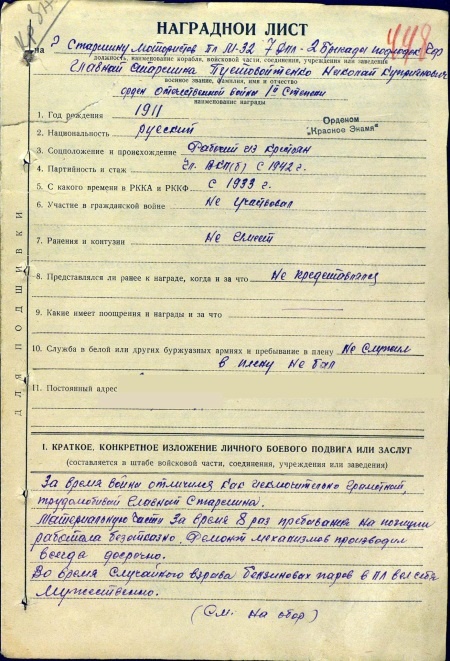 НАГРАДНОЙ ЛИСТ
448
на Старшину Мотористов пл М-32 7 Дпл - 2 Бригады подлодок
должность, наименование корабля, войсковой части, соединения, учреждения или заведения
Главной Старшина Пустовойтенко Николай Куприянович
военное звание, фамилия, имя и отчество
орден Отечественной войны 1й Степени
наименование награды
1. Год рождения 1911
Орденом
"Красное Знамя"
2. Национальность русский
3. Соцположение и происхождение Рабочий из Крестьян
4. Партийность и стаж Чл. ВКП(б) с 1942 г.
5. С какого времени в РККА и РККФ с 1933 г.
6. Участие в гражданской войне Не участвовал
7. Ранения и контузии Не Имеет
8. Представлялся ли ранее к награде, когда и за что Не представлялся
9. Какие имеет поощрения и награды и за что
10. Служба в белой или других буржуазных армиях и пребывание в плену Не Служил
в плену не был
11. Постоянный адрес
ДЛЯ ПОДШИВКИ
I. КРАТКОЕ, КОНКРЕТНОЕ ИЗЛОЖЕНИЕ ЛИЧНОГО БОЕВОГО ПОДВИГА ИЛИ ЗАСЛУГ
(составляется в штабе войсковой части, соединения, учреждения или заведения)
За время войны отличился как исключительно грамотной,
трудолюбивой Главной Старшина.
Материальную часть за время 8 раз пребывания на позиции
работала безотказно. Ремонт механизмов производил
всегда досрочно.
Во время случайного взрыва бензиновых паров в ПЛ вел себя
Мужественно.
(См. на обор)